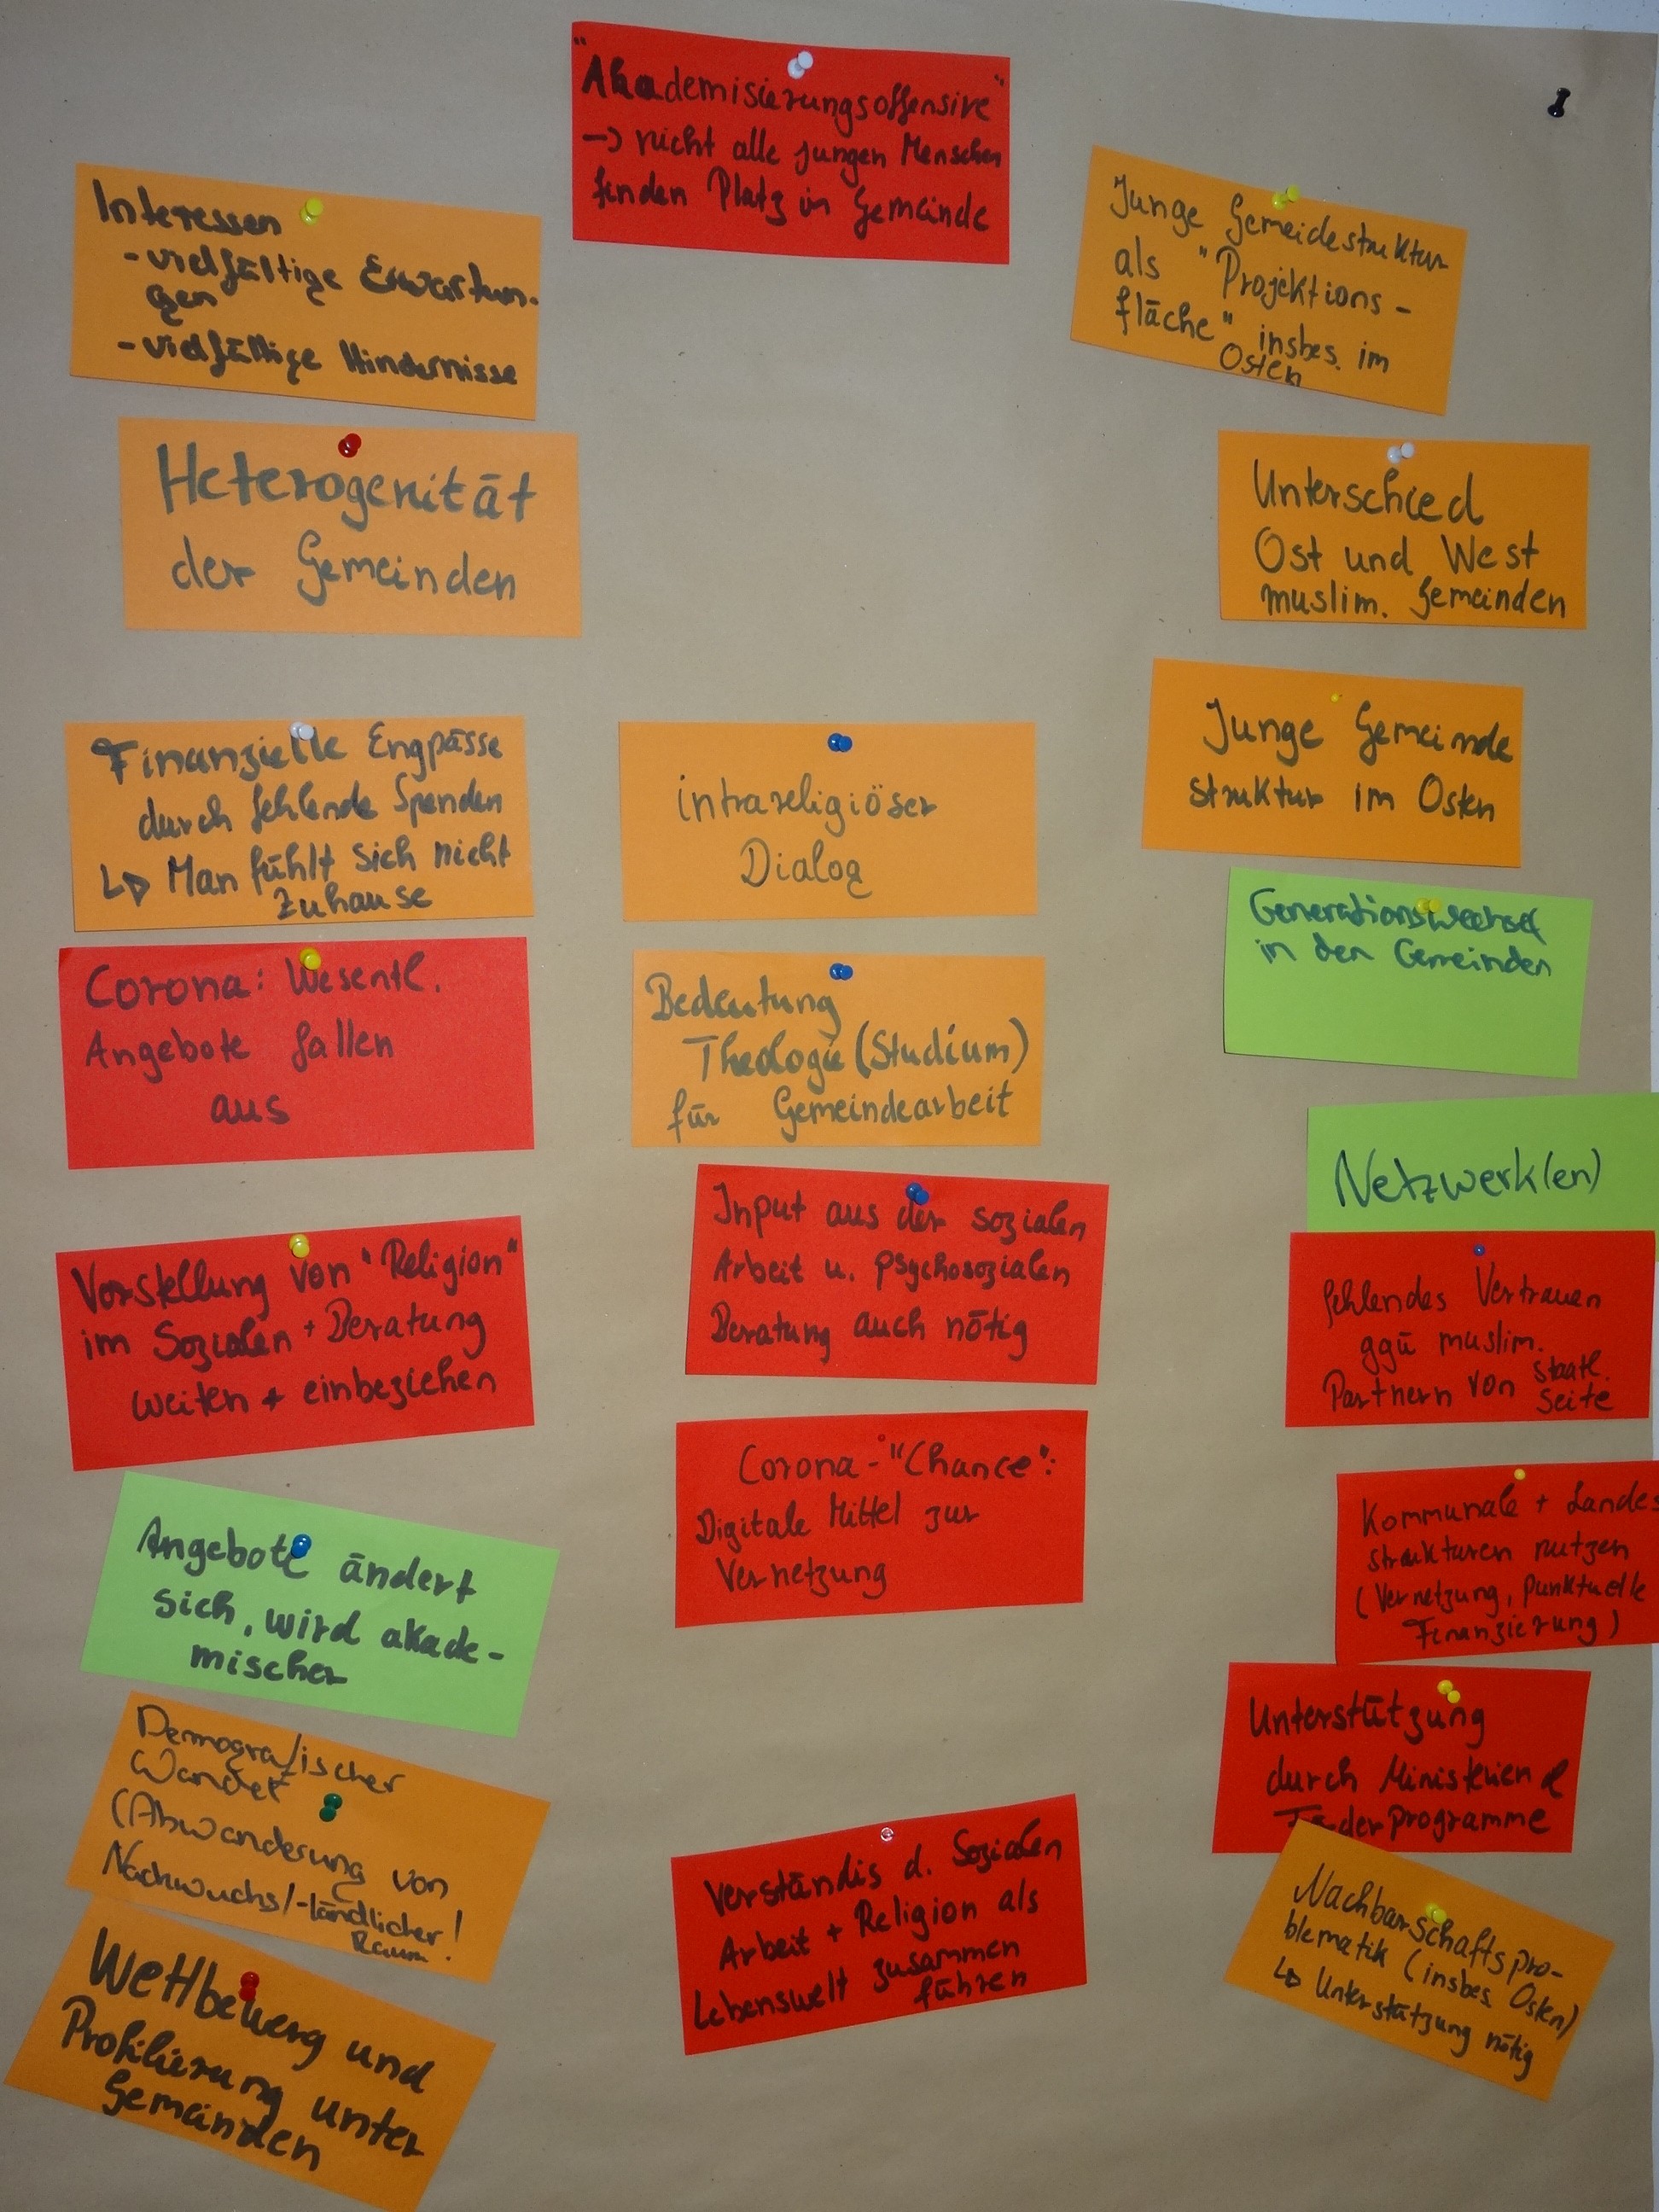 "Akademisierungsoffensive"
-> nicht alle jungen Menschen
finden Platz in Gemeinde
Interessen
- vielfältige Erwartun-
gen
- vielfältige Hindernisse
Heterogenität
der Gemeinden
Finanzielle Engpässe
durch fehlende Spenden
↳ Man fühlt sich nicht
Zuhause
Corona: Wesentl.
Angebote fallen
aus
Vorstellung von "Religion"
im Sozialen + Beratung
weiten + einbeziehen
Angebote ändert
sich, wird akade-
mischer
Demografischer
Wandel
(Abwanderung von
Nachwuchs/-ländlicher!
Raum
Wettbewerg und
Profilierung unter
Gemeinden
intrareligiöser
Dialog
Bedeutung
Theologie (Studium)
für Gemeindearbeit
Input aus der sozialen
Arbeit u. psychosozialen
Beratung auch nötig
Corona-"Chance":
Digitale Mittel zur
Vernetzung
Verständis d. Sozialen
Arbeit + Religion als
Lebenswelt zusammen
führen
Junge Gemeidestruktur
als "Projektions-
fläche" insbes. im
Osten
Unterschied
Ost und West
muslim. Gemeinden
Junge Gemeinde
struktur im Osten
Generationswechsel
in den Gemeinden
Netzwerk(en)
fehlendes Vertrauen
ggü muslim.
Partnern von staatl.
Seite
Kommunale + Landes
strukturen nutzen
(Vernetzung, punktuelle
Finanzierung)
Unterstützung
durch Ministerien &
Förderprogramme
Nachbarschaftspro-
blematik (insbes. Osten)
↳ Unterstützung nötig